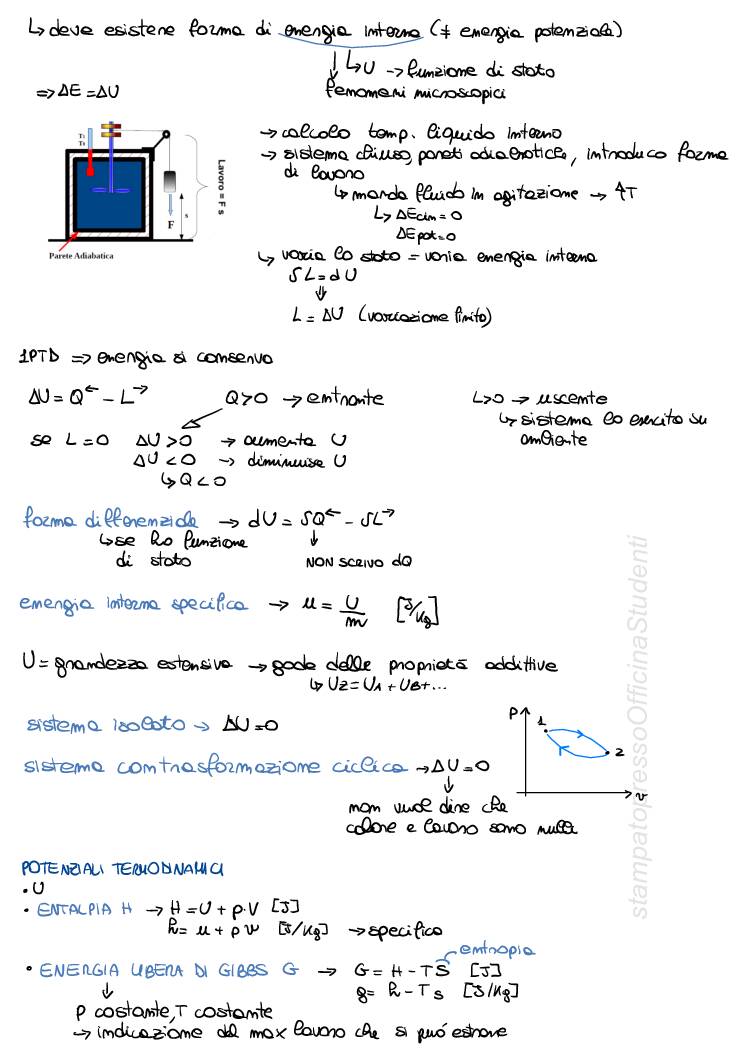 ↳ deve esistere forma di energia interna (≠ energia potenziale)
↳ U → funzione di stato
⇒ ΔE = ΔU
fenomeni microscopici
→ calcolo temp. liquido interno
→ sistema chiuso, pareti adiabatiche, introduco forma
di lavoro
↳ manda fluido in agitazione → ↑T
↳ ΔEcin = 0
ΔEpot = 0
Lavoro = F s
F
s
Parete Adiabatica
↳ varia lo stato = varia energia interna
δL = dU
⇓
L = ΔU (variazione finita)
1PTD ⇒ energia si conserva
ΔU = Q← - L→ Q>0 → entrante L>0 → uscente
↳ sistema lo esercita su
ambiente
se L=0 ΔU>0 → aumenta U
ΔU<0 → diminuisce U
↳ Q<0
forma differenziale → dU = δQ← - δL→
↳ se ho funzione
di stato
↓
NON SCRIVO dQ
energia interna specifica → u = U/m [J/kg]
U = grandezza estensiva → gode delle proprietà additive
↳ UZ = UA + UB + ...
sistema isolato → ΔU = 0
sistema con trasformazione ciclica → ΔU = 0
↓
non vuol dire che
calore e lavoro sono nulli
P
1
2
v
POTENZIALI TERMODINAMICI
• U
• ENTALPIA H → H = U + p·V [J]
h = u + p v [J/kg] → specifica
entropia
• ENERGIA LIBERA DI GIBBS G → G = H - TS [J]
g = h - Ts [J/kg]
↓
P costante, T costante
→ indicazione del max lavoro che si può estrarre
stampatopressoOfficinaStudenti